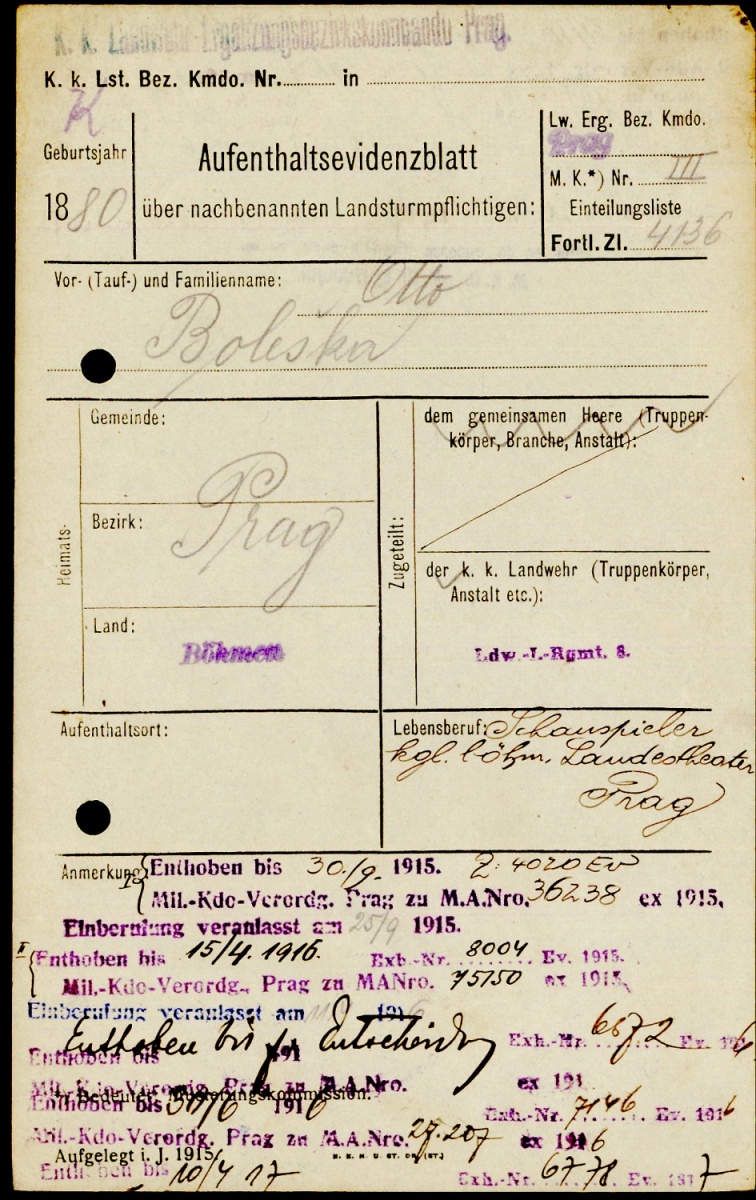 K. k. Landwehr-Ergänzungsbezirkskommando Prag.
K. k. Lst. Bez. Kmdo. Nr. in
K
Geburtsjahr
1880
Aufenthaltsevidenzblatt
über nachbenannten Landsturmpflichtigen:
Lw. Erg. Bez. Kmdo.
Prag
M. K.*) Nr. III
Einteilungsliste
Fortl. Zl. 4136
Vor- (Tauf-) und Familienname: Otto
Boleška
Heimats-
Gemeinde:
Bezirk: Prag
Land:
Böhmen
Zugeteilt:
dem gemeinsamen Heere (Truppen-
körper, Branche, Anstalt):
der k. k. Landwehr (Truppenkörper,
Anstalt etc.):
Ldw.-I.-Rgmt. 8.
Aufenthaltsort:
Lebensberuf: Schauspieler
kgl. böhm. Landestheater
Prag
Anmerkung:
Enthoben bis 30./9. 1915. Z: 4020 Ev
Mil.-Kdo-Verordg. Prag zu M.A.Nro. 36238 ex 1915.
Einberufung veranlasst am 25/9 1915.
II
Enthoben bis 15/4. 1916. Exh.-Nr. 8004 Ev. 1915.
Mil.-Kdo-Verordg. Prag zu MANro. 75150 ex 1915.
Einberufung veranlasst am 1916
Enthoben bis zur Entscheidung Exh.-Nr. 6572 Ev. 1916
Enthoben bis 191
Mil.-Kdo-Verordg. Prag zu M.A.Nro. ex 191
*) Bedeutet: Musterungskommission.
Enthoben bis 30/6 1916 Exh.-Nr. 7146 Ev. 1916
Mil.-Kdo-Verordg. Prag zu M.A.Nro. 27.207 ex 1916
Aufgelegt i. J. 1915.
Enthoben bis 10/4 17 Exh.-Nr. 6778 Ev. 1917